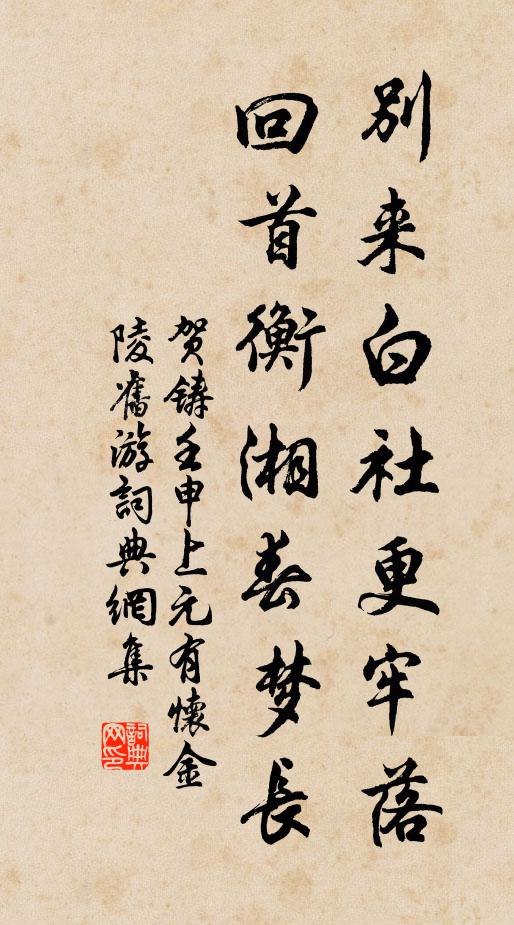 别来白社更牢落
回首衡湘春梦长
贺鋳壬申上元有懷金
陵舊游詞典網集
詞典
网印